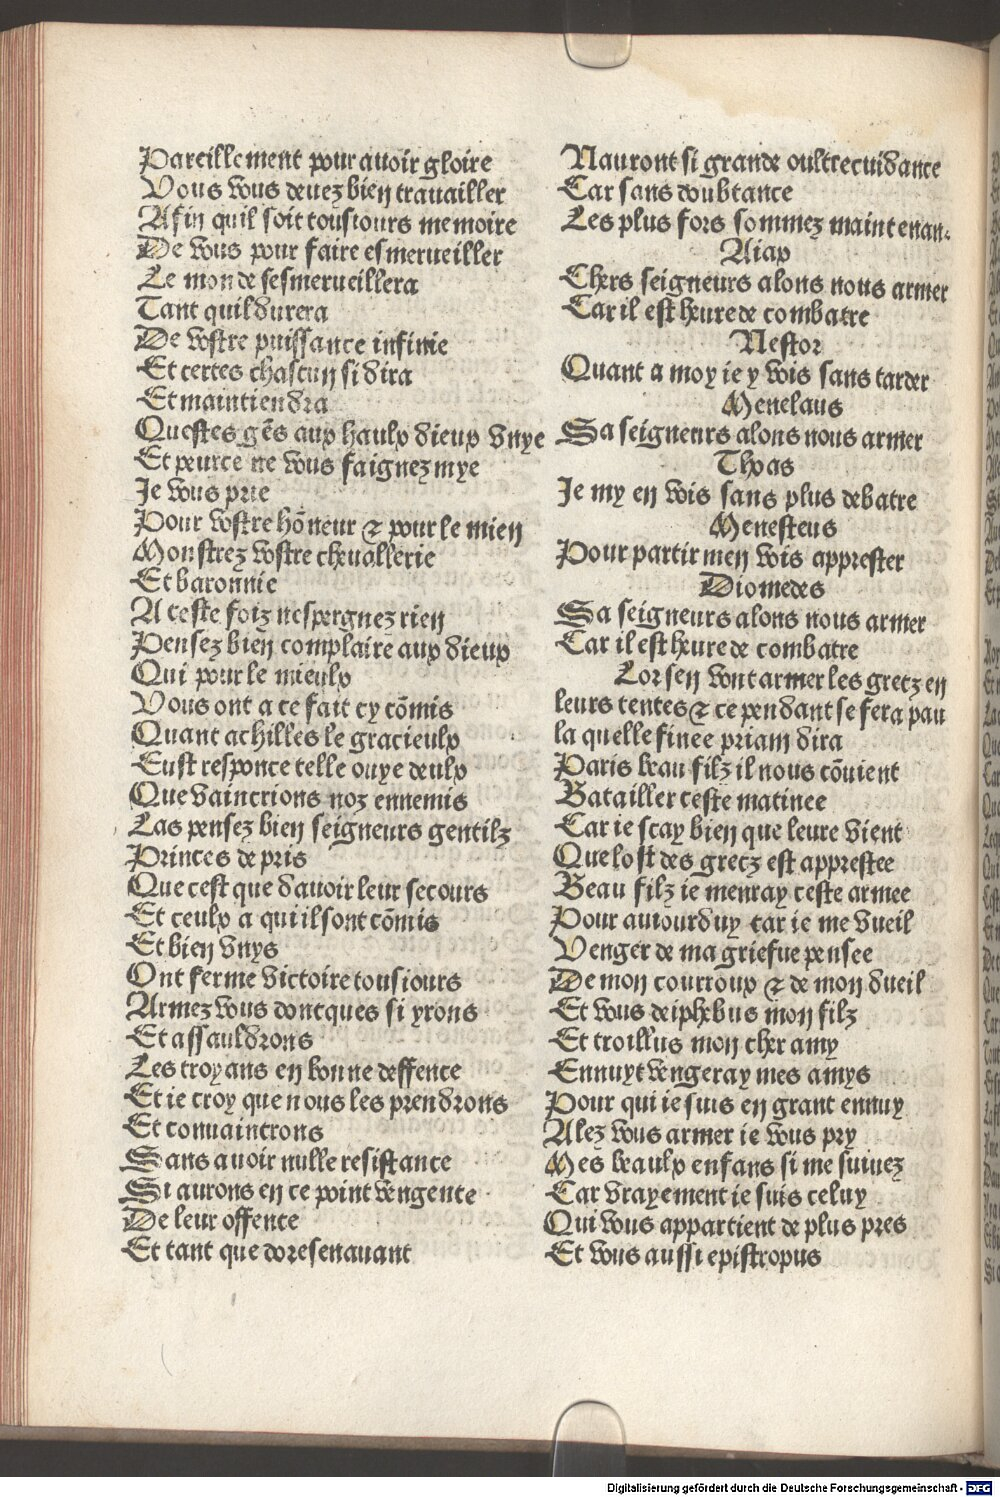 Pareillement pour auoir gloire
Vous vous deuez bien trauailler
Afin quil soit tousiours memoire
De vous pour faire esmerueiller
Le monde sesmerueillera
Tant quil durera
De vostre puissance infinie
Et certes chascun si dira
Et maintiendra
Questes gẽs aux haulx dieux vnye
Et pource ne vous faignez mye
Je vous prie
Pour vostre hõneur & pour le mien
Monstrez vostre cheuallerie
Et baronnie
A ceste foiz nespergnez rien
Pensez bien complaire aux dieux
Qui pour le mieulx
Vous ont a ce fait cy cõmis
Quant achilles le gracieulx
Eust responce telle ouye deulx
Que vaincrions noz ennemis
Las pensez bien seigneurs gentilz
Princes de pris
Que cest que dauoir leur secours
Et ceulx a qui ilsont cõmis
Et bien vnys
Ont ferme victoire tousiours
Armez vous doncques si yrons
Et assauldrons
Les troyans en bonne deffence
Et ie croy que nous les prendrons
Et conuaincrons
Sans auoir nulle resistance
Si aurons en ce point vengente
De leur offence
Et tant que doresenauant
Nauront si grande oultrecuidance
Car sans doubtance
Les plus fors sommez maintenan.
Aiax
Chers seigneurs alons nous armer
Car il est heure de combatre
Nestor
Quant a moy ie y vois sans tarder
Menelaus
Sa seigneurs alons nous armer
Thoas
Je my en vois sans plus debatre
Menesteus
Pour partir men vois apprester
Diomedes
Sa seigneurs alons nous armer
Car il est heure de combatre
Lorsen vont armer les grecz en
leurs tentes & ce pendant se fera pau
la quelle finee priam dira
Paris beau filz il nous cõuient
Batailler ceste matinee
Car ie scay bien que leure vient
Que lost des grecz est apprestee
Beau filz ie menray ceste armee
Pour auiourduy car ie me vueil
Venger de ma griefue pensee
De mon courroux & de mon dueil
Et vous deiphebus mon filz
Et troillus mon cher amy
Ennuyt vengeray mes amys
Pour qui ie suis en grant ennuy
Alez vous armer ie vous pry
Mes beaulx enfans si me suiuez
Car vrayement ie suis celuy
Qui vous appartient de plus pres
Et vous aussi epistropus
Digitalisierung gefördert durch die Deutsche Forschungsgemeinschaft - DFG